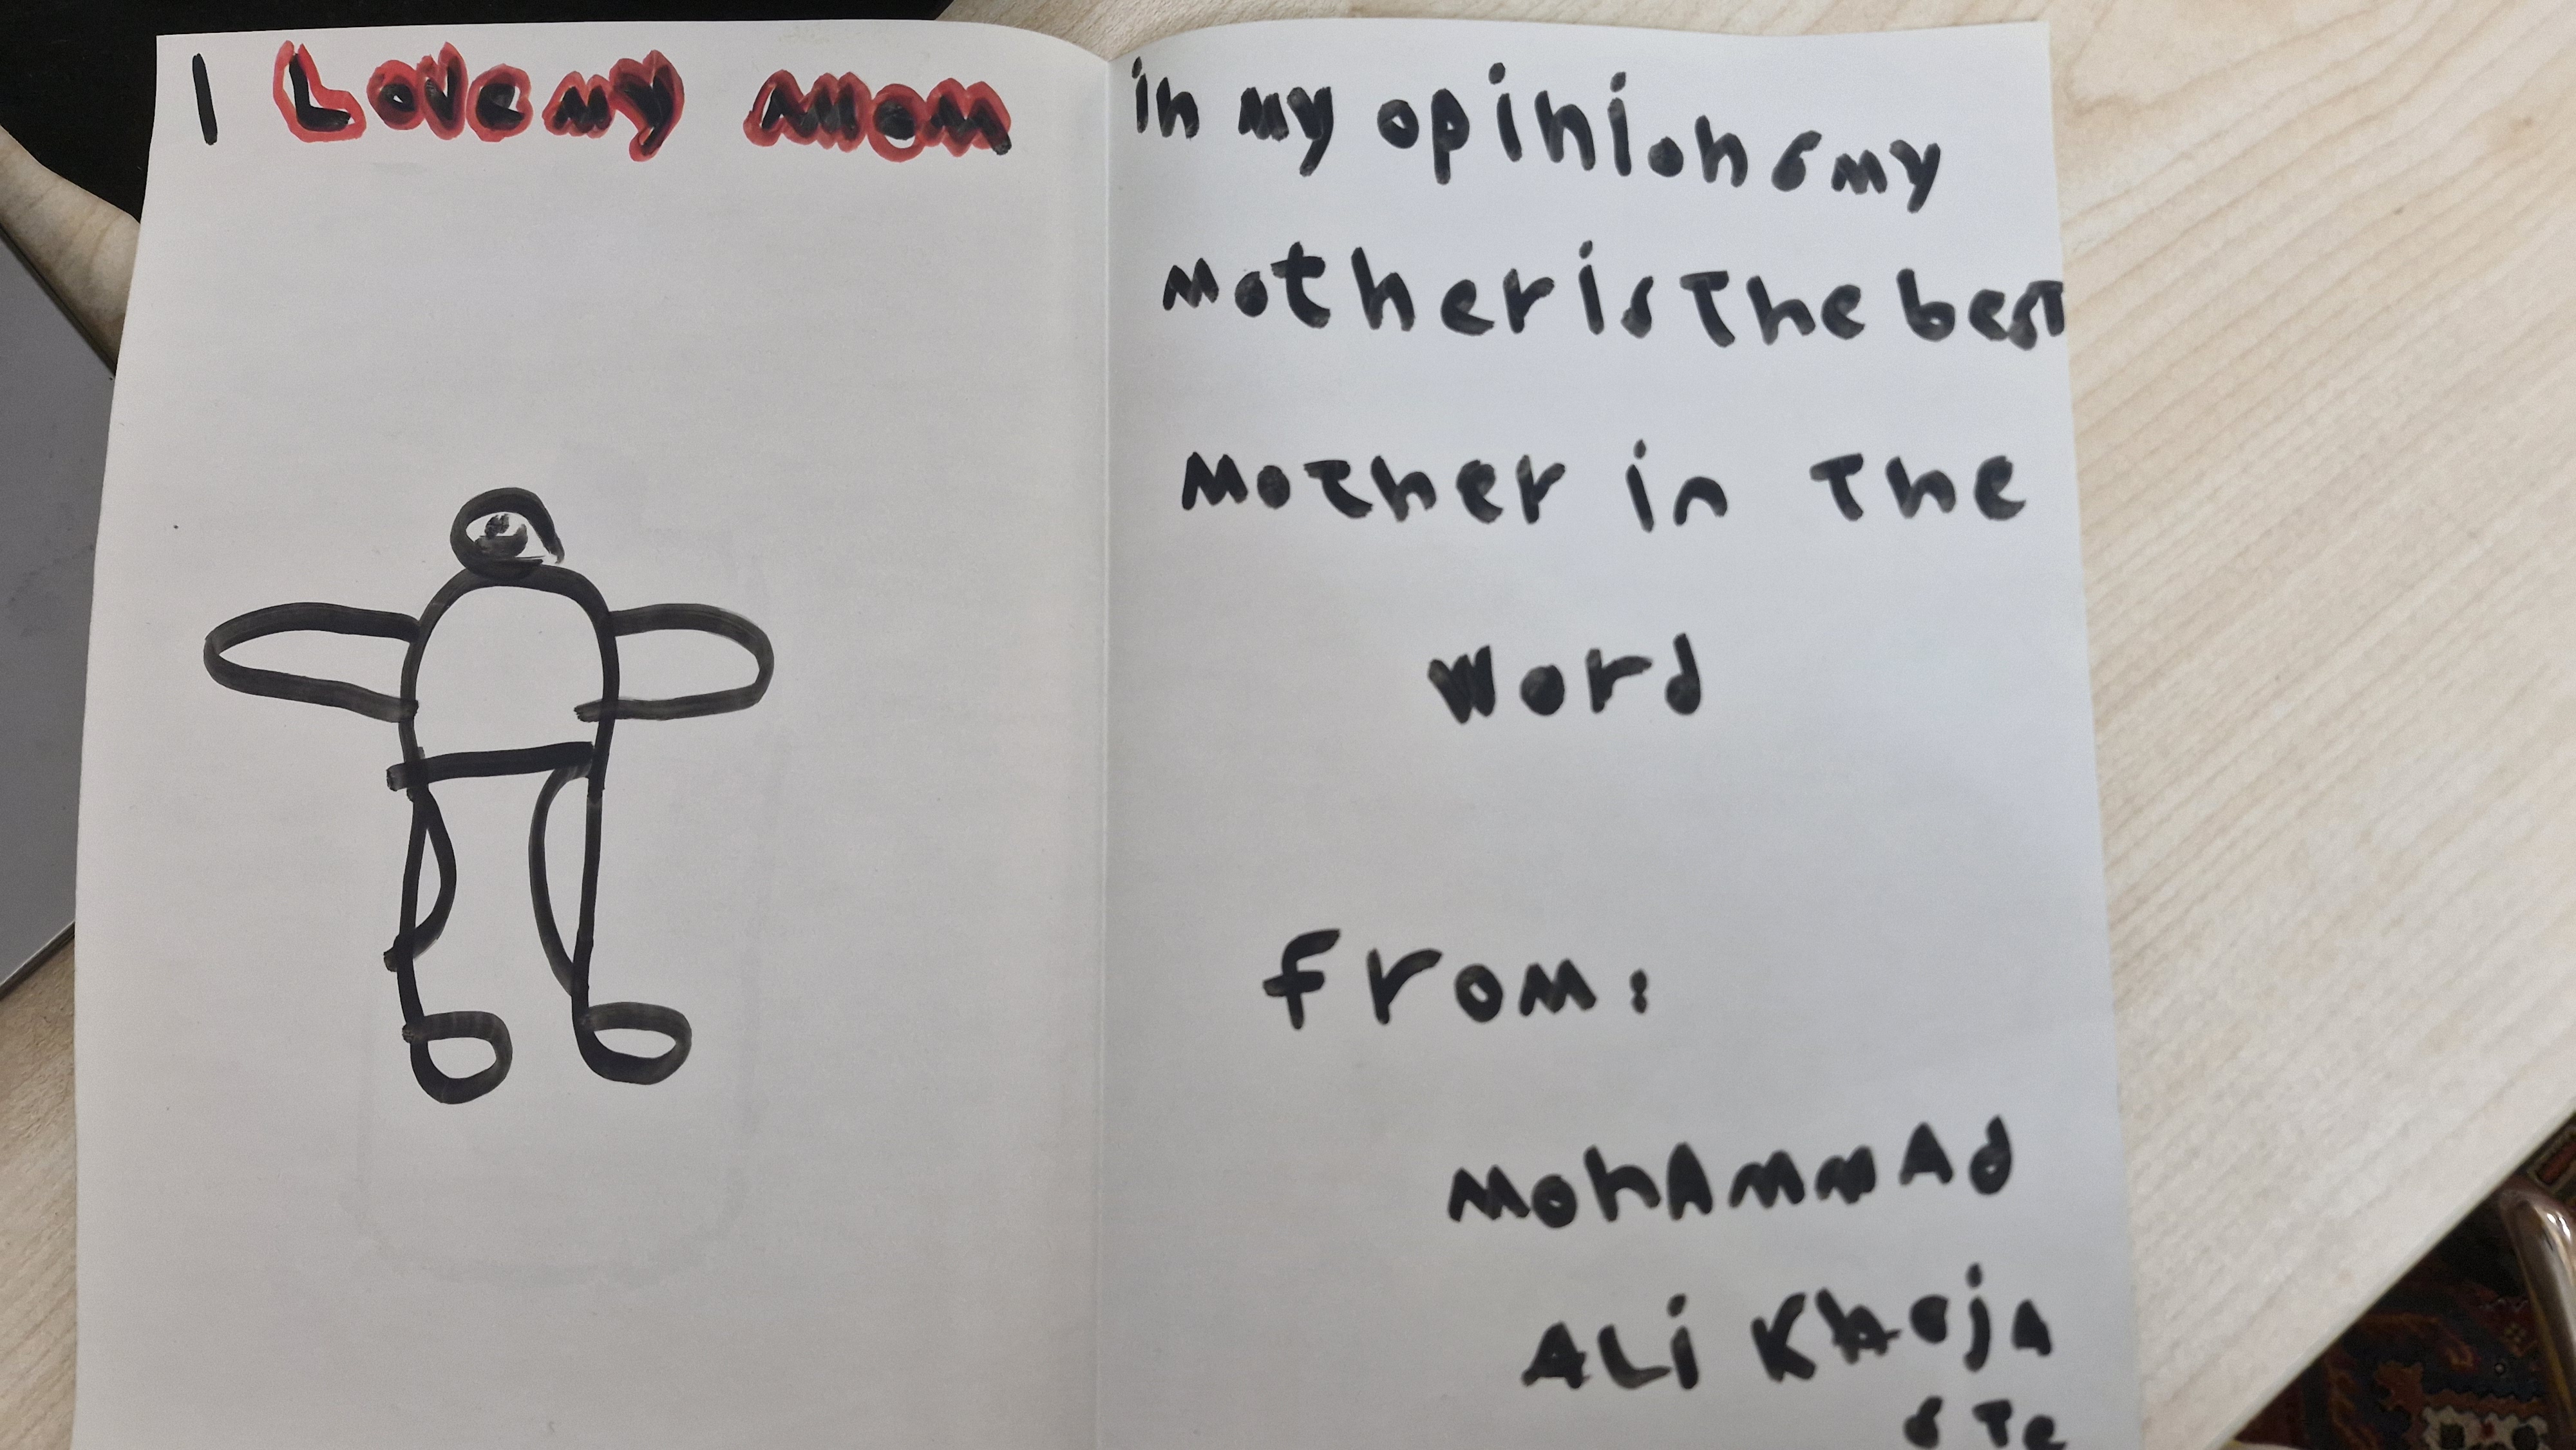 I Love my mom
in my opinion my
Mother is The best
Mother in The
word
from:
MohAmmAd
ALi Khoja
sTe